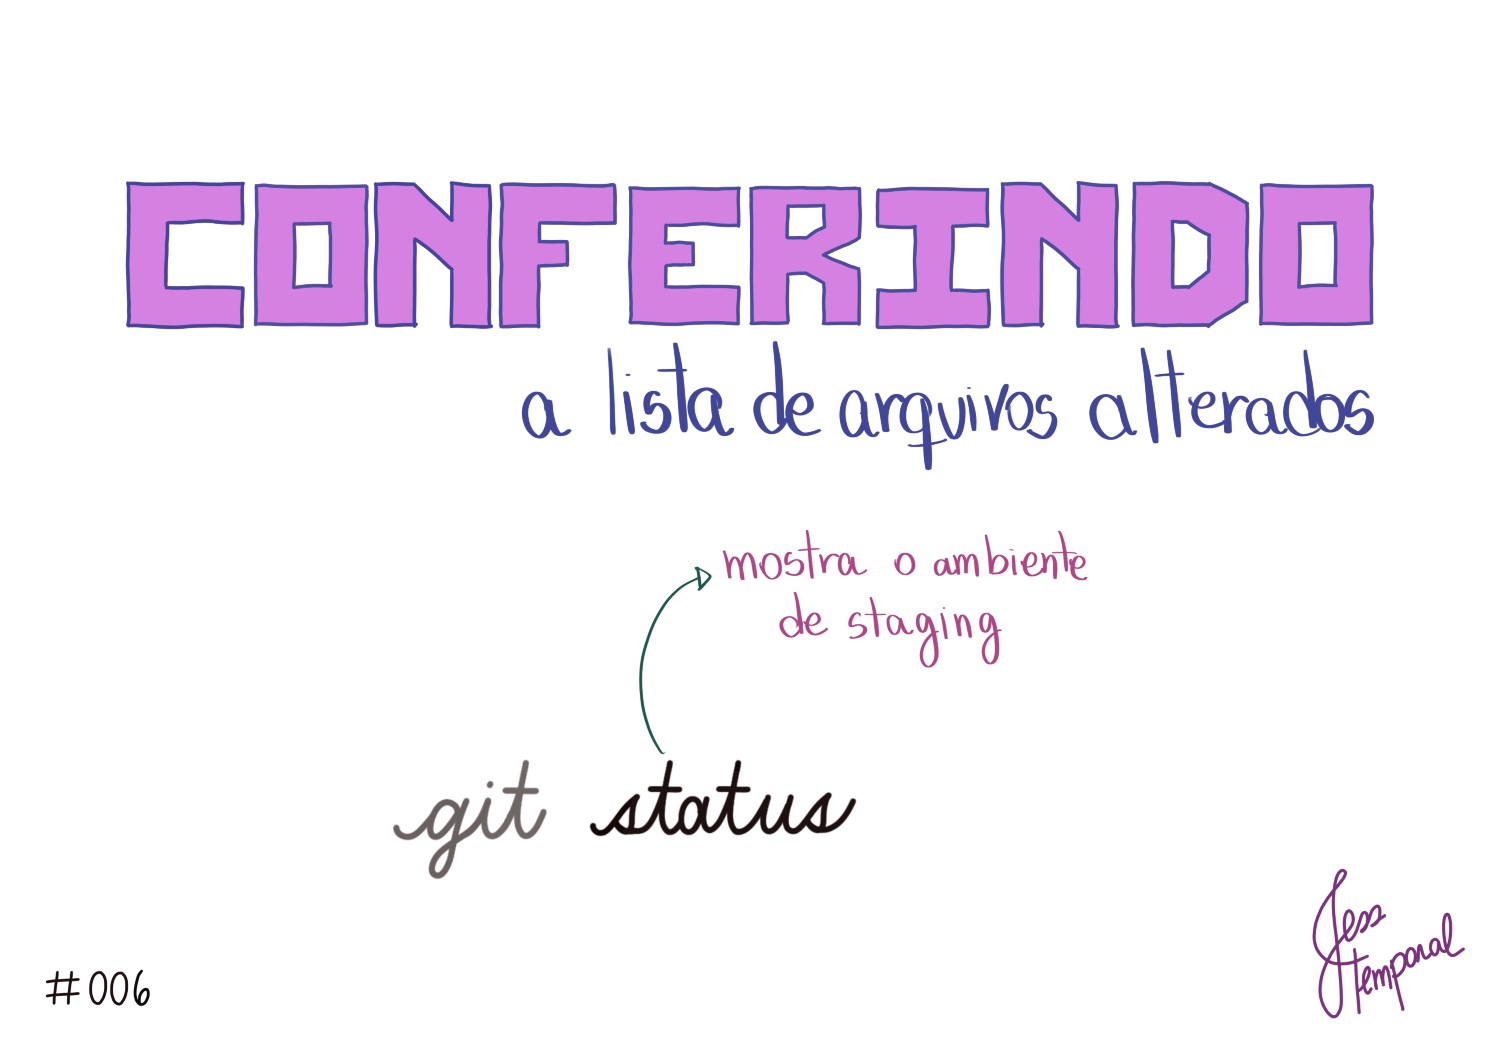 CONFERINDO
a lista de arquivos alterados
mostra o ambiente
de staging
git status
#006
Jess
temporal